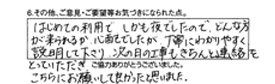 6.その他、ご意見・ご要望等お気づきになられた点。
はじめての利用で しかも夜でしたので、どんな方
が来られるか 心配でしたが 丁寧にわかりやすく
説明して下さり 次の日の工事もきちんと連絡を
とっていただき ご協力ありがとうございました。
こちらにお願いして良かったと思いました。